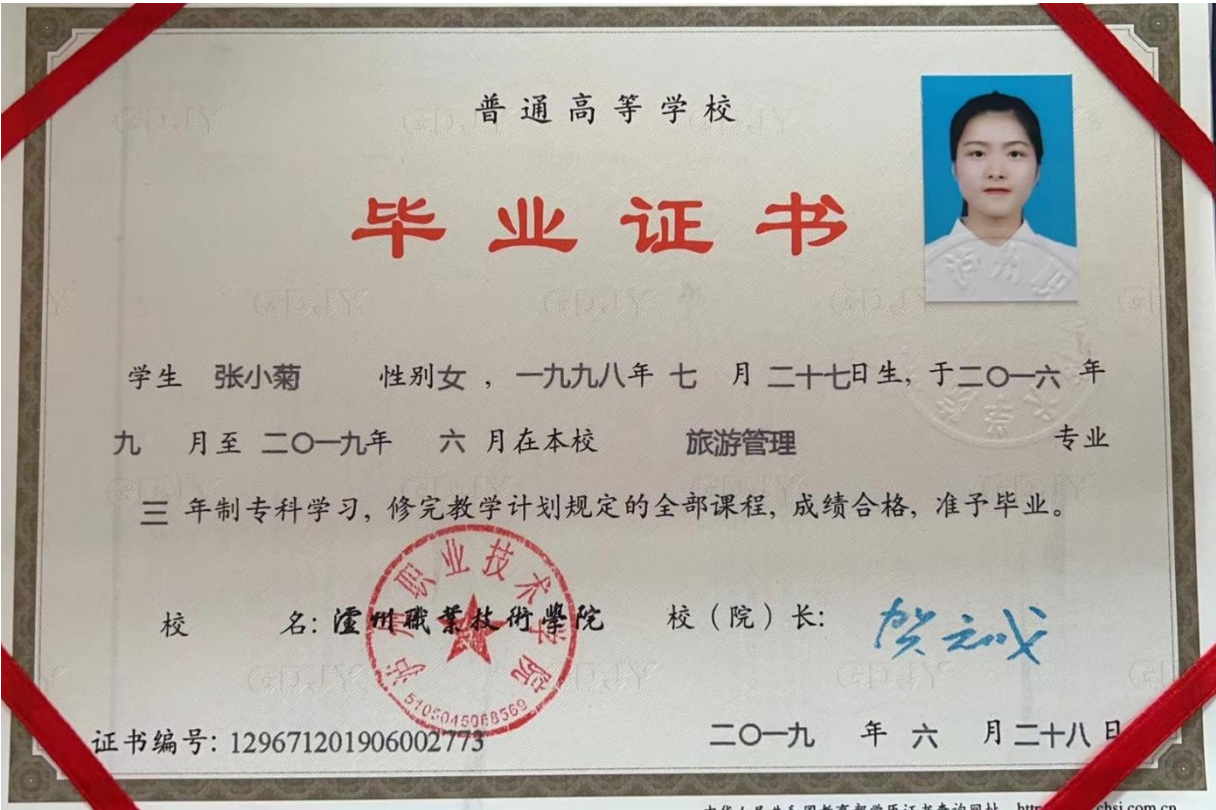 普通高等学校
毕业证书
学生 张小菊 性别女，一九九八年 七 月 二十七日生，于二〇一六 年
九 月至 二〇一九年 六 月在本校 旅游管理 专业
三 年制专科学习，修完教学计划规定的全部课程，成绩合格，准予毕业。
校 名：瀘州職業技術學院 校（院）长：贺元成
泸州职业技术学院
5105045068569
证书编号：129671201906002773
二〇一九 年 六 月二十八日
中华人民共和国教育部学历证书查询网站 http chsi.com.cn